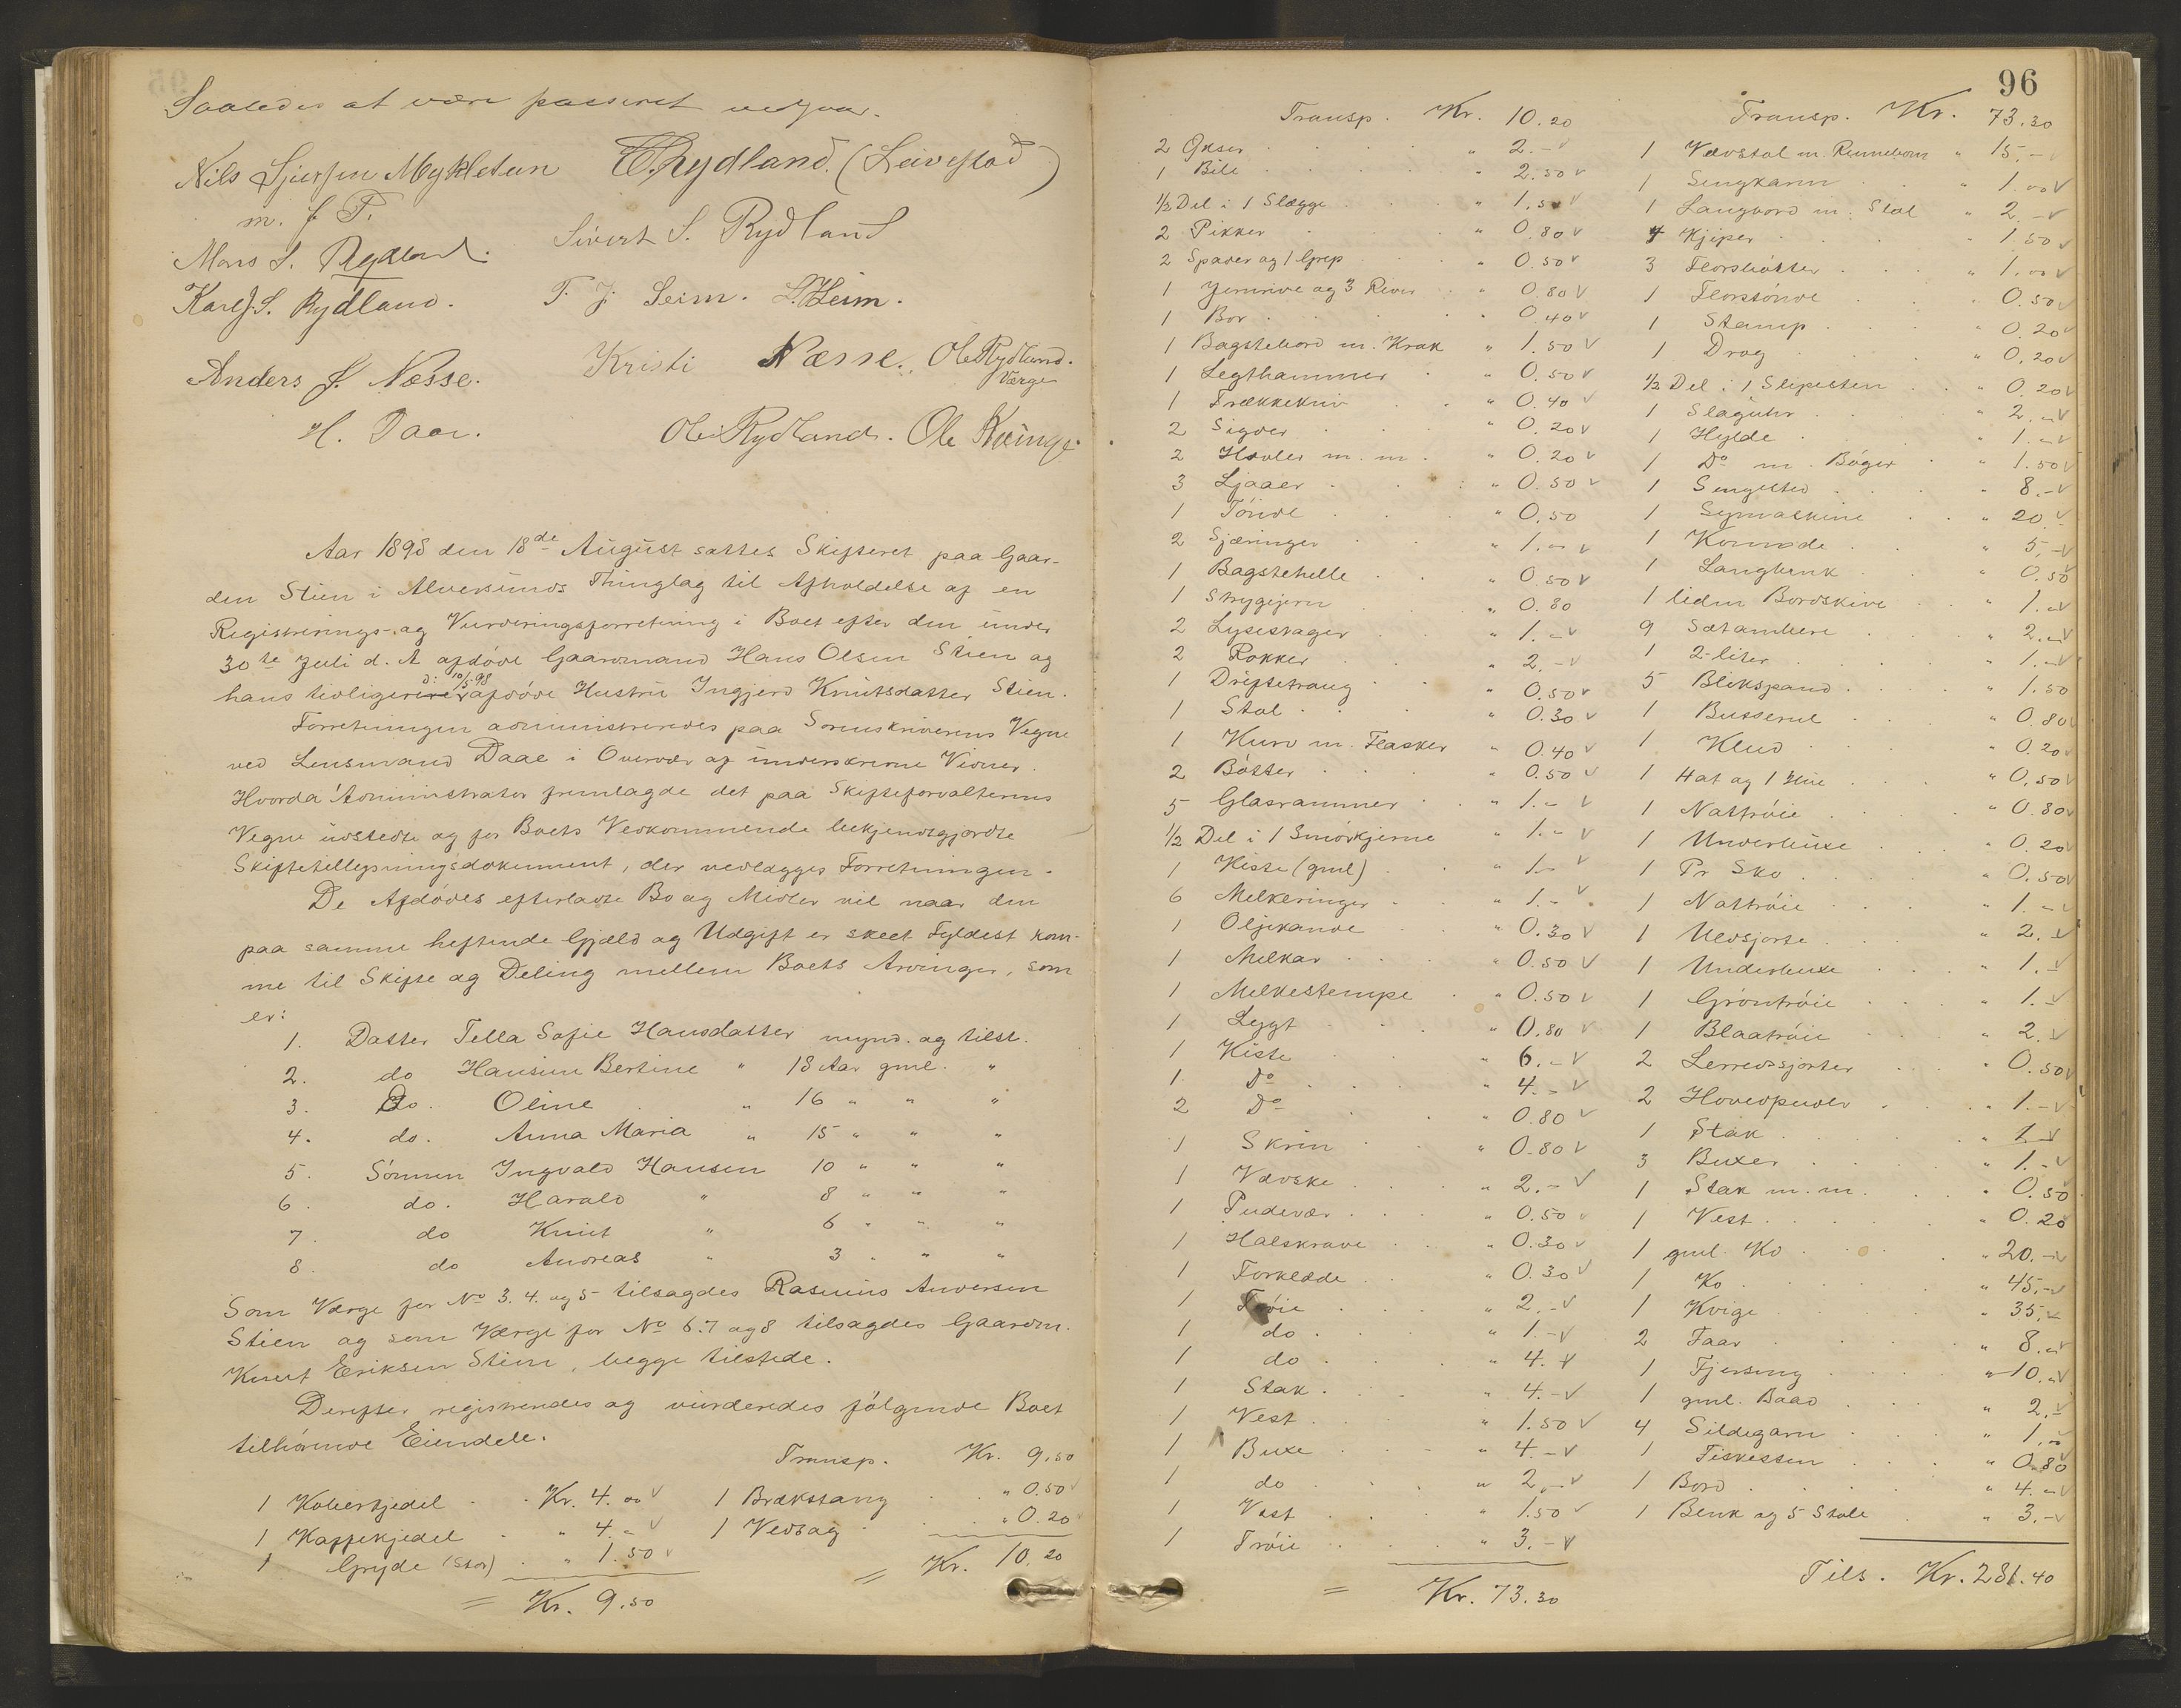 Saaledes at være passeret vedgaar.
Nils Sjursen Mykletun
m. f. P.
T. Rydland. (Leivestad)
Mons S. Rydland.
Sivert S. Rydland
Karl J. S. Rydland.
T. J. Seim. L. Heim.
Anders J. Nesse.
Kristi Næsse.
Ole Rydland.
Værge
H. Daae.
Ole Rydland. Ole Kvinge.
Aar 1898 den 18de August sattes Skifteret paa Gaar-
den Stien i Alversunds Thinglag til Afholdelse af en
Registrerings- og Vurderingsforretning i Boet efter den under
30te Juli d. A afdøde Gaardmand Hans Olsen Stien og
hans tidligere d: 10/5.98 afdøde Hustru Ingjerd Knutsdatter Stien.
Forretningen administreredes paa Sorenskriverens Vegne
ved Lensmand Daae i Overvær af underskrevne Vidner.
Hvorda Administrator fremlagde det paa Skifteforvalterens
Vegne udstedte og for Boets Vedkommende bekjendtgjordte
Skiftetillysningsdokument, der vedlægges Forretningen.
De Afdødes efterladte Bo og Midler vil naar den
paa samme heftende Gjæld og Udgift er skeet Fyldest kom-
me til Skifte og Deling mellem Boets Arvinger, som
er:
1. Datter Tella Sofie Hansdatter mynd. og tilst.
2. do Hansine Bertine " 18 Aar gml. "
3. Do. Oline " 16 " " "
4. do. Anna Maria " 15 " " "
5. Sønnen Ingvald Hansen 10 " " "
6. do. Harald " 8 " " "
7. do Knut " 6 " " "
8. do Andreas " 3 " " "
Som Værge for No 3. 4. og 5 tilsagdes Rasmus Andersen
Stien og som Værge for No 6. 7 og 8 tilsagdes Gaardm.
Knut Eriksen Stien, begge tilstede.
Derefter registreredes og vurderedes følgende Boet
tilhørende Eiendele.
1 Kobberkjedel . . Kr. 4. 00 V
1 Kaffekjedel . " 4. - V
1 Gryde (Stor) . " 1.50 V
= Kr. 9.50
Transp. Kr. 9.50
1 Brækstang . . " 0.50 V
1 Vedsag . . " 0.20 V
= Kr. 10.20
96
Transp. Kr. 10.20
2 Øxser . . . . " 2.- V
1 Bile . . . . " 2.50 V
1/2 Del i 1 Slægge . . " 1.50 V
2 Pikker . . . " 0.80 V
2 Spader og 1 Grep . " 0.50 V
1 Jernrive og 3 River . " 0.80 V
1 Bor . . . . " 0.40 V
1 Bagstebord m. Krak " 1.50 V
1 Legthammer . " 0.50 V
1 Trækkekniv . . " 0.40 V
2 Sigder . . . " 0.20 V
2 Høvler m. m. . " 0.20 V
3 Ljaaer . . . " 0.50 V
1 Tønde . . . " 0.50
2 Sjæringer . . " 1.- V
1 Bagstehelle . . " 0.50 V
1 Strygejern . . " 0.80
2 Lysestager . . " 1.- V
2 Rokker . . . " 2.- V
1 Driftetraug . . " 0.50 V
1 Stol . . . " 0.30 V
1 Kurv m. Flasker " 0.40 V
2 Bøtter . . . " 0.50 V
5 Glasrammer . . " 1.- V
1/2 Del i 1 Smørkjerne " 1.- V
1 Kiste (gml) . . " 1.- V
6 Melkeringer . . " 1.- V
1 Oljekande . . " 0.30 V
1 Melkar . . . " 0.50 V
1 Melkestempe . " 0.50 V
1 Lygt . . . " 0.80 V
1 Kiste . . . " 6.- V
1 Do . . . " 4.- V
2 Do . . . " 0.80 V
1 Skrin . . . " 0.80 V
1 Vadske . . . " 2.- V
1 Pudevar . . . " 0.50 V
1 Halskrave . . " 0.30 V
1 Forklæde . . " 0.30 V
1 Trøie . . . " 2.- V
1 do . . . " 1.- V
1 do . . . " 4. V
1 Stak . . . " 4.- V
1 Vest . . . " 1.50 V
1 Buxe . . . " 4.- V
1 do . . . " 2.- V
1 Vest . . . " 1.50 V
1 Trøie . . . " 3.- V
= Kr. 73.30
Transp. Kr. 73.30
1 Vævstol m. Rennebom " 15.- V
1 Sengkarm . . " 1.00 V
1 Langbord m. Stol " 2.- V
4 Kjiper . . . " 1.50 V
3 Florsbøtter . . " 1.00 V
1 Florstønde . . " 0.50 V
1 Stamp . . . " 0.20 V
1 Drag . . . " 0.20 V
1/2 Del i 1 Slipesten . " 0.20 V
1 Slaguhr . . " 2.- V
1 Hylde . . . " 1.- V
1 Do m. Bøger . " 1.50 V
1 Sengested . . " 8.- V
1 Symaskine . . " 20. V
1 Komode . . " 5.- V
1 Langbenk . . " 0.50
1 liden Bordskive " 1.- V
9 Setambere . . " 2.- V
1 2-liter . . . " 1.- V
5 Blikspand . . " 1.50
1 Busserul . . " 0.80 V
1 Klud . . . " 0.20 V
1 Hat og 1 Hue . " 0.50 V
1 Nattrøie . . " 0.80 V
1 Underbuxe . . " 0.20 V
1 Pr Sko . . . " 0.50 V
1 Nattrøie . . " 1.- V
1 Uldsjorte . . " 2. V
1 Underbuxe . . " 1. V
1 Grøntrøie . . " 1.- V
1 Blaatrøie . . " 2. V
2 Lerredssjorter . " 0.50 V
2 Hovedpuder . . " 1.- V
1 Stak . . . " 1.- V
3 Buxer . . . " 1.- V
1 Stak m. m. . " 0.50
1 Vest . . . " 0.20
1 gml. Ko . . " 20.- V
1 Ko . . . " 45.- V
1 Kvige . . " 35. V
2 Faar . . . " 8.- V
1 Fjersing . . " 10.- V
1 gml. Baad . . " 2. V
4 Sildegarn . . " 1.00
1 Fiskessen . . " 0.80
1 Bord . . . " 4.- V
1 Benk og 5 Stole . " 3.- V
Tils. Kr. 281.40